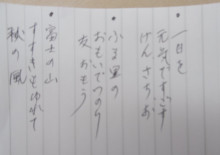 一日を
元気ですごす
けんさちお
ふる里の
おもいでつのり
友おもう
富士の山
すすきもゆれて
秋の風